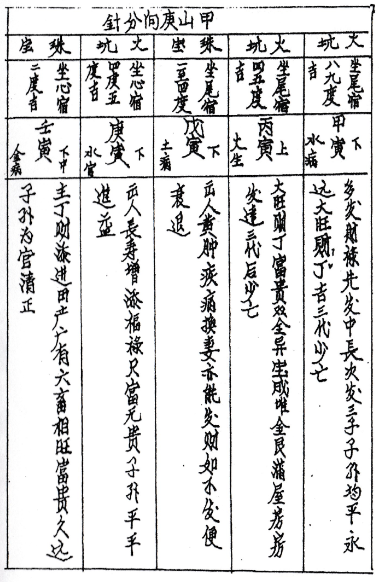 甲山庚向分針
火坑
坐尾宿
八九度
吉
甲寅
下
水病
多发财禄先发中長次发三手子孙均平永
远大旺财丁吉三代少亡
火坑
坐尾宿
四五度
吉
丙寅
上
火生
大旺财丁富贵双全异宝成堆金艮滿屋房房
发達三代后少亡
珠宝
坐尾宿
一至四度
戊寅
下
土病
出人黄肿疾病换妻亦能发财如不发便
衰退
火坑
坐心宿
四度五
度吉
庚寅
下
水官
出人長寿增添福禄只富无贵子孙平平
進益
珠宝
坐心宿
二度吉
壬寅
下中
金病
主丁财添進田产广有六畜相旺富贵久远
子孙为官清正